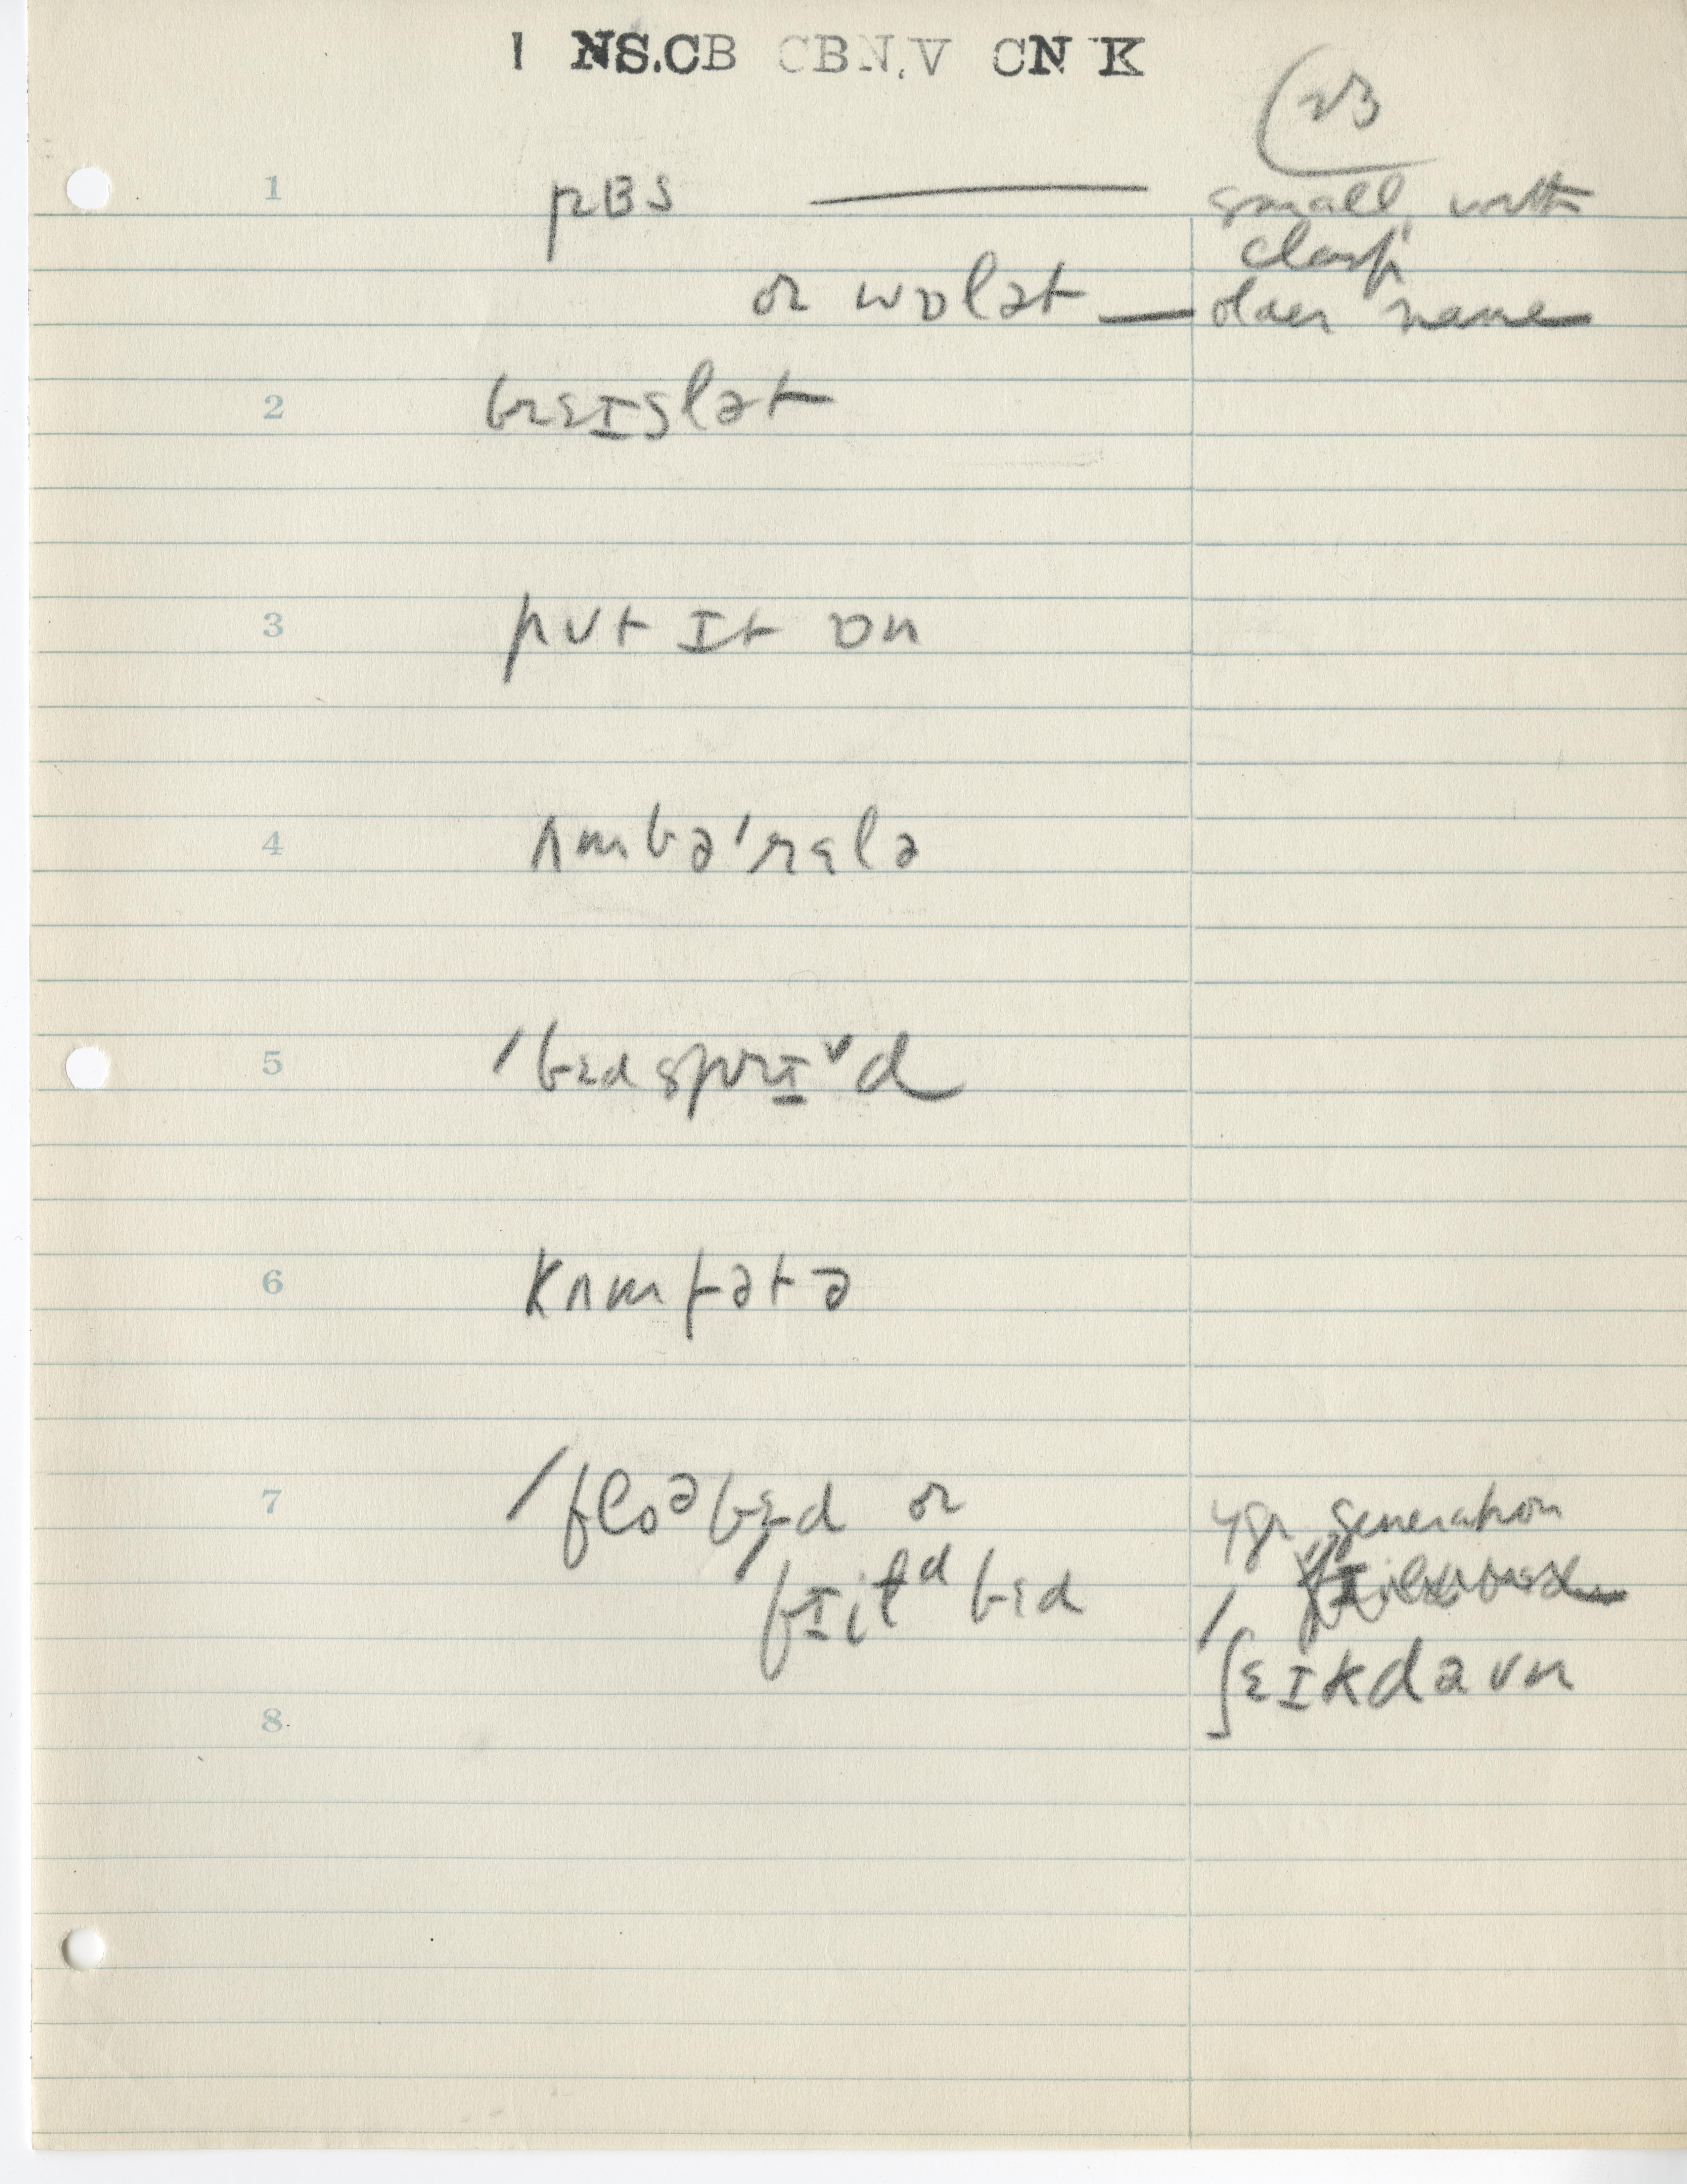 1 NS.CB CBN.V CN K
23
1 pɜs ——— small, with
clasp
or wɒlət — older name
2 brɛɪslət
3 pʊt ɪt ɒn
4 ʌmbəˈrɛlə
5 ˈbɛdsprɪˇd
6 kʌmfətə
7 ˈfloᵊbɛd or ygr generation
ˈfɪilᵈbɛd
ˈʃɛɪkdaʊn
8